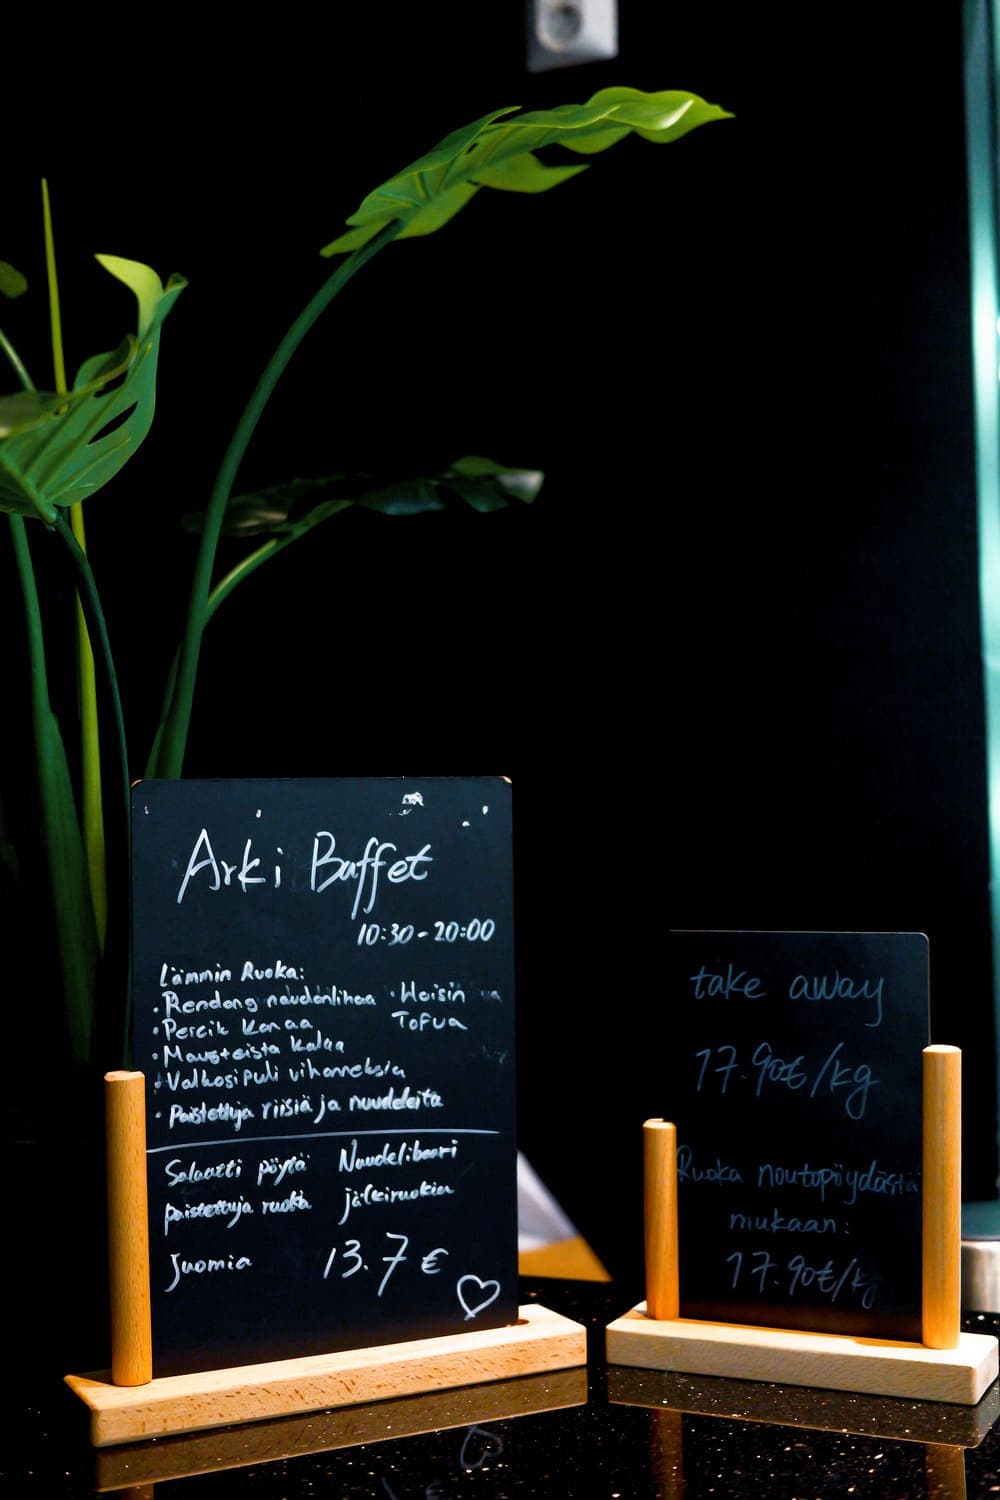 Arki Buffet
10:30-20:00
Lämmin Ruoka:
• Rendang naudanlihaa
• Percik Kanaa
• Mausteista kalaa
• Valkosipuli vihanneksia
• Paistettuja riisiä ja nuudeleita
• Hoisin
Tofua
Salaatti pöytä
Nuudelibaari
paistettuja ruokia
jälkiruokia
Juomia
13.7€
take away
17.90€/kg
Ruoka noutopöydästä
mukaan:
17.90€/kg